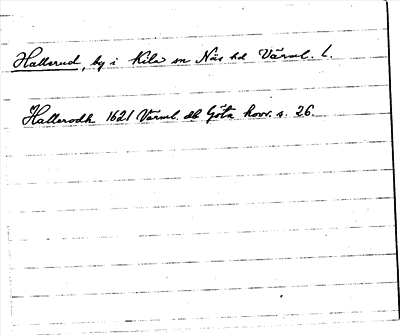 Hallerud, by i Kila sn Näs hd Värml. l.
Hallerodh 1621 Värml. db Göta hovr. s. 26.